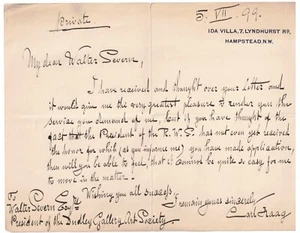 private
5. VII. 99.
IDA VILLA, 7, LYNDHURST RD,
HAMPSTEAD. N.W.
My dear Walter Severn,
I have received and thought over your letter and
it would give me the very greatest pleasure to render you the
service you demand of me, but if you have thought of the
fact that the President of the R.W.S. has not even yet received
the honor for which (as you informe me) you have made application,
then will you be able to feel, that it cannot be quite so easy for me
to move in the matter!
Wishing you all success,
I remain yours sincerely
Carl Haag
To
Walter Severn Esqre
President of the Dudley Gallery Art Society